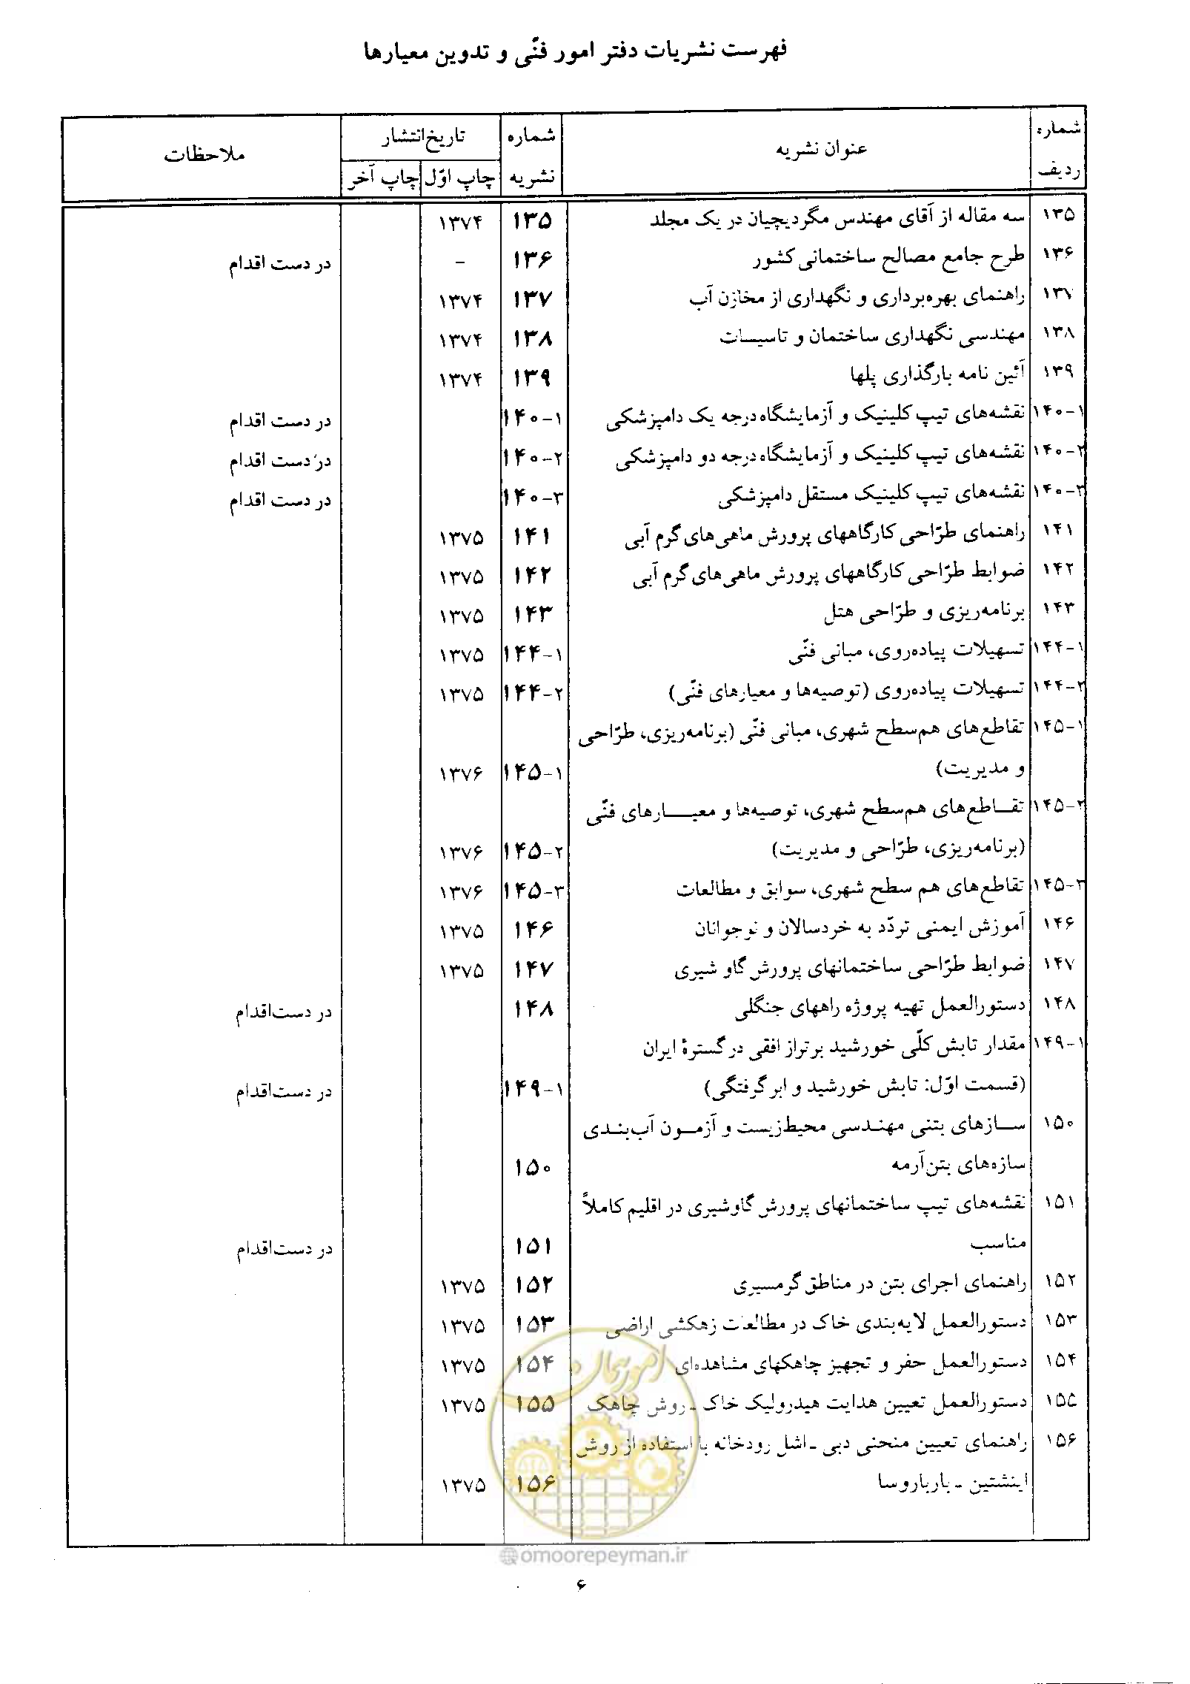 فهرست نشریات دفتر امور فنّی و تدوین معیارها
شماره ردیف عنوان نشریه شماره نشریه تاریخ‌انتشار چاپ اوّل چاپ آخر ملاحظات
۱۳۵ سه مقاله از آقای مهندس مگردیچیان در یک مجلد ۱۳۵ ۱۳۷۴
۱۳۶ طرح جامع مصالح ساختمانی کشور ۱۳۶ - در دست اقدام
۱۳۷ راهنمای بهره‌برداری و نگهداری از مخازن آب ۱۳۷ ۱۳۷۴
۱۳۸ مهندسی نگهداری ساختمان و تاسیسات ۱۳۸ ۱۳۷۴
۱۳۹ آئین نامه بارگذاری پلها ۱۳۹ ۱۳۷۴
۱۴۰-۱ نقشه‌های تیپ کلینیک و آزمایشگاه درجه یک دامپزشکی ۱۴۰-۱ در دست اقدام
۱۴۰-۲ نقشه‌های تیپ کلینیک و آزمایشگاه درجه دو دامپزشکی ۱۴۰-۲ در دست اقدام
۱۴۰-۳ نقشه‌های تیپ کلینیک مستقل دامپزشکی ۱۴۰-۳ در دست اقدام
۱۴۱ راهنمای طرّاحی کارگاههای پرورش ماهی‌های گرم آبی ۱۴۱ ۱۳۷۵
۱۴۲ ضوابط طرّاحی کارگاههای پرورش ماهی‌های گرم آبی ۱۴۲ ۱۳۷۵
۱۴۳ برنامه‌ریزی و طرّاحی هتل ۱۴۳ ۱۳۷۵
۱۴۴-۱ تسهیلات پیاده‌روی، مبانی فنّی ۱۴۴-۱ ۱۳۷۵
۱۴۴-۲ تسهیلات پیاده‌روی (توصیه‌ها و معیارهای فنّی) ۱۴۴-۲ ۱۳۷۵
۱۴۵-۱ تقاطع‌های هم‌سطح شهری، مبانی فنّی (برنامه‌ریزی، طرّاحی
و مدیریت) ۱۴۵-۱ ۱۳۷۶
۱۴۵-۲ تقـاطع‌های هم‌سطح شهری، توصیه‌ها و معیـــارهای فنّی
(برنامه‌ریزی، طرّاحی و مدیریت) ۱۴۵-۲ ۱۳۷۶
۱۴۵-۳ تقاطع‌های هم سطح شهری، سوابق و مطالعات ۱۴۵-۳ ۱۳۷۶
۱۴۶ آموزش ایمنی تردّد به خردسالان و نوجوانان ۱۴۶ ۱۳۷۵
۱۴۷ ضوابط طرّاحی ساختمانهای پرورش گاو شیری ۱۴۷ ۱۳۷۵
۱۴۸ دستورالعمل تهیه پروژه راههای جنگلی ۱۴۸ در دست‌اقدام
۱۴۹-۱ مقدار تابش کلّی خورشید برتراز افقی در گسترهٔ ایران
(قسمت اوّل: تابش خورشید و ابر گرفتگی) ۱۴۹-۱ در دست‌اقدام
۱۵۰ ســازهای بتنی مهنـدسی محیط‌زیست و آزمــون آب‌بنـدی
سازه‌های بتن‌آرمه ۱۵۰
۱۵۱ نقشه‌های تیپ ساختمانهای پرورش گاوشیری در اقلیم کاملاً
مناسب ۱۵۱ در دست‌اقدام
۱۵۲ راهنمای اجرای بتن در مناطق گرمسیری ۱۵۲ ۱۳۷۵
۱۵۳ دستورالعمل لایه‌بندی خاک در مطالعات زهکشی اراضی ۱۵۳ ۱۳۷۵
۱۵۴ دستورالعمل حفر و تجهیز چاهکهای مشاهده‌ای ۱۵۴ ۱۳۷۵
۱۵۵ دستورالعمل تعیین هدایت هیدرولیک خاک - روش چاهک ۱۵۵ ۱۳۷۵
۱۵۶ راهنمای تعیین منحنی دبی - اشل رودخانه با استفاده از روش
اینشتین - بارباروسا ۱۵۶ ۱۳۷۵
امور پیمان
@omoorepeyman.ir
۶